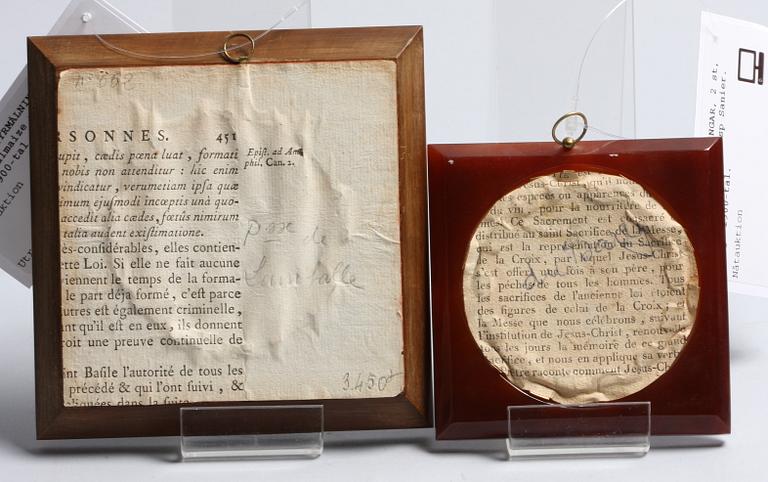 Nº 662
RSONNES. 451
upit, cædis pœna luat, formati
nobis non attenditur : hîc enim
vindicatur, verumetiam ipſa quæ
imum ejuſmodi inceptis unà quo-
accedit alia cædes, fœtûs nimirum
talia audent exiſtimatione.
Epiſt. ad Am
phil. Can. 2.
ès-conſidérables, elles contien-
ette Loi. Si elle ne fait aucune
viennent le temps de la forma-
le part déja formé, c'eſt parce
utres eſt également criminelle,
ant qu'il eſt en eux, ils donnent
roit une preuve continuelle de
int Baſile l'autorité de tous les
précédé & qui l'ont ſuivi, &
liquées dans la ſuite
de
Lamballe
3.450
Jesus-Christ, qu'il nou
es espèces ou apparences du
du vin, pour la nourriture de
mes. Ce Sacrement est consacré
distribué au saint Sacrifice de la Messe,
qui est la représentation du Sacrifice
de la Croix, par lequel Jesus-Christ
s'est offert une fois à son père, pour
les péchés de tous les hommes. Tous
les sacrifices de l'ancienne loi étoient
des figures de celui de la Croix, et
la Messe que nous célébrons, suivant
l'institution de Jesus-Christ, renouvelle
tous les jours la mémoire de ce grand
Sacrifice, et nous en applique sa vertu
être raconte comment Jesus-Ch
NGAR, 2 st,
sp Sanier.
1900-tal.
Nätauktion